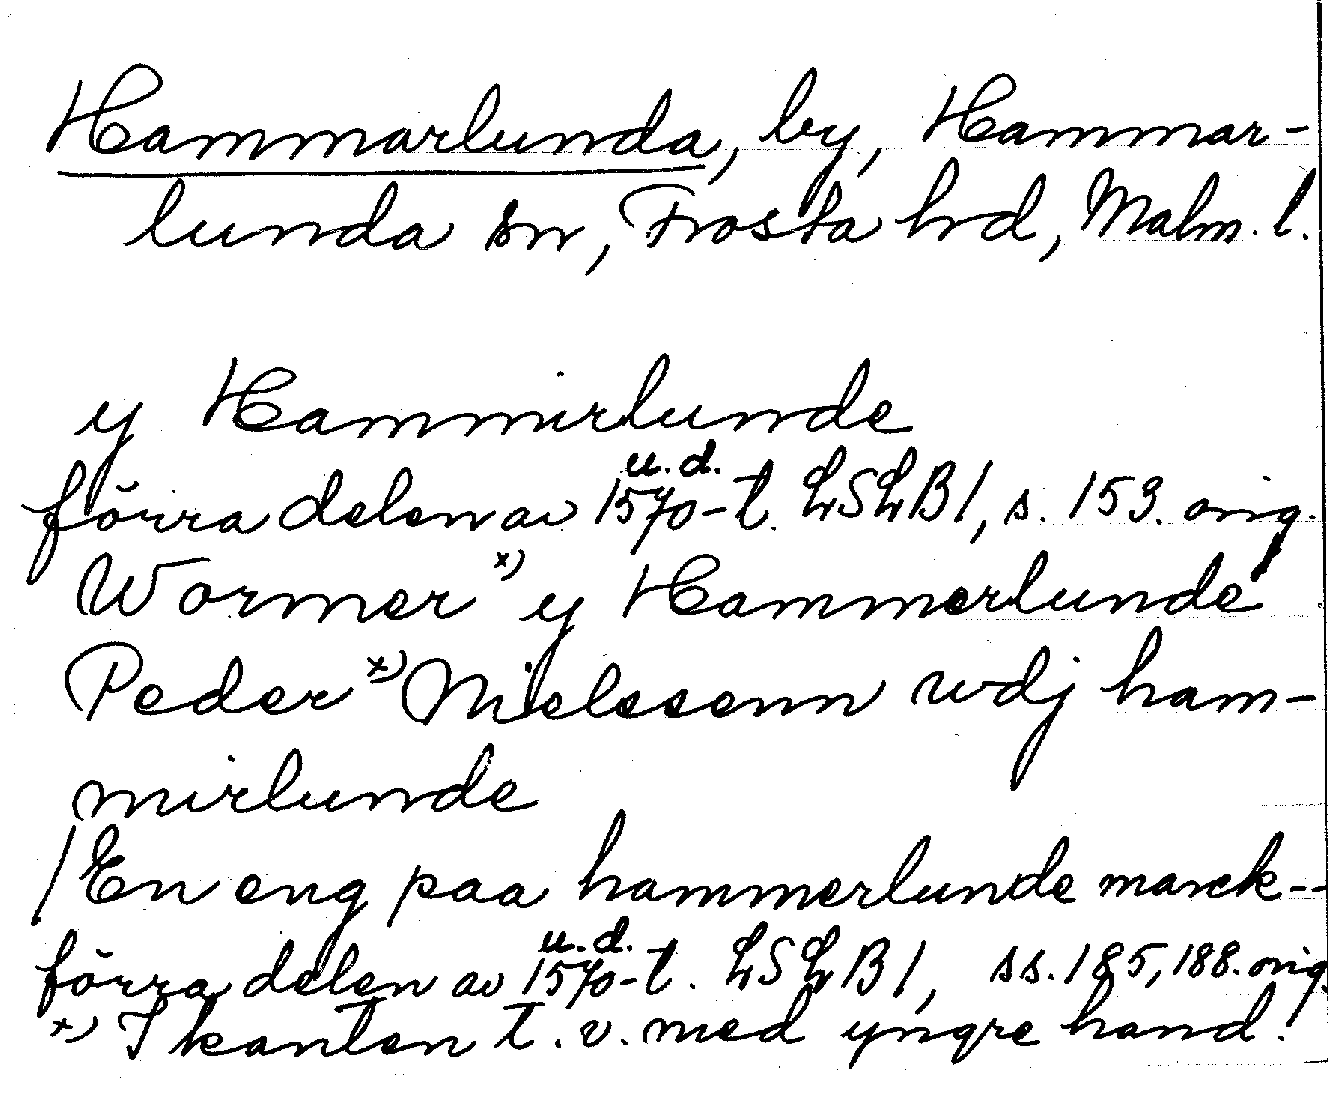 Hammarlunda, by, Hammar-
lunda sn, Frosta hd, Malm. l.
y Hammirlunde
u.d.
förra delen av 1570-t. LSLB1, s. 153. orig.
Wormer x) y Hammerlunde
Peder x) Nielssenn wdj ham-
mirlunde
/En eng paa hammerlunde marck--
u.d.
förra delen av 1570-t. LSLB1, ss. 185, 188. orig.
x) I kanten t.v. med yngre hand!